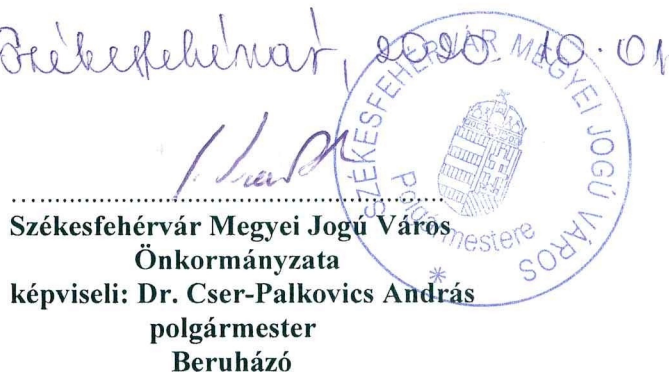 Székesfehérvár, 2020. 10. 01
SZÉKESFEHÉRVÁR MEGYEI JOGÚ VÁROS
Polgármestere
*
........................................................
Székesfehérvár Megyei Jogú Város
Önkormányzata
képviseli: Dr. Cser-Palkovics András
polgármester
Beruházó